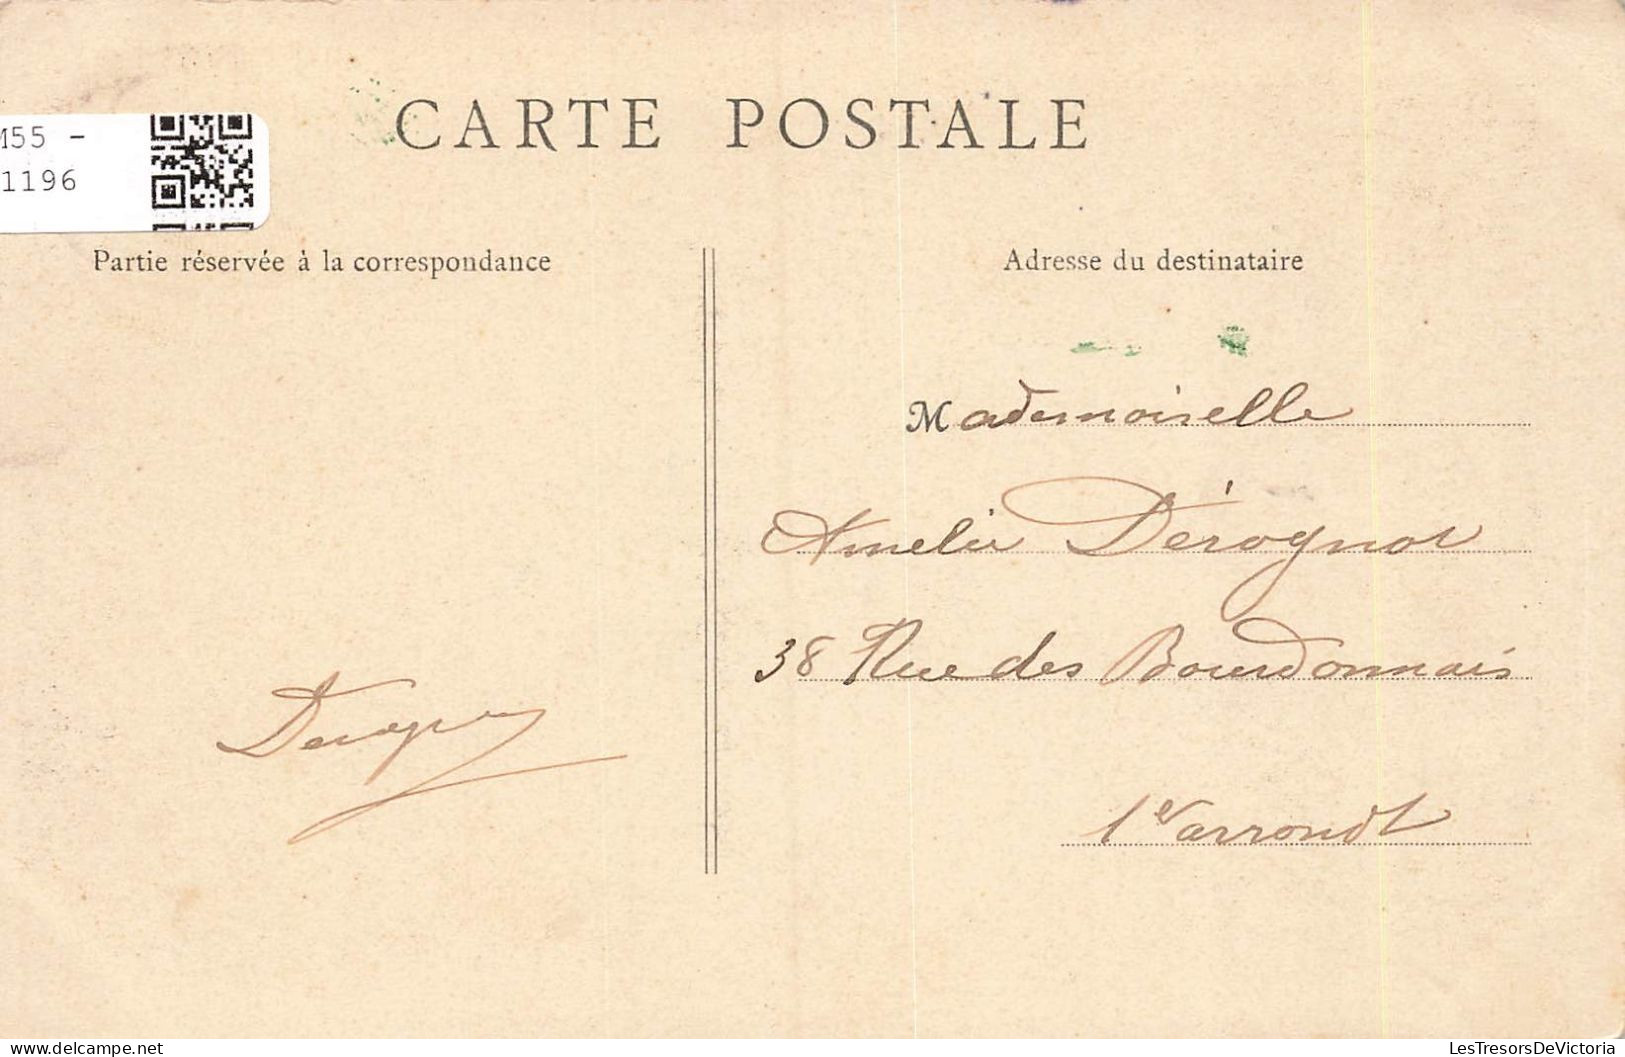 CARTE POSTALE
M55 -
1196
Partie réservée à la correspondance
Adresse du destinataire
Mademoiselle
Amelie Dérognat
38 Rue des Bourdonnais
1er arrondt
www.delcampe.net
LesTresorsDeVictoria